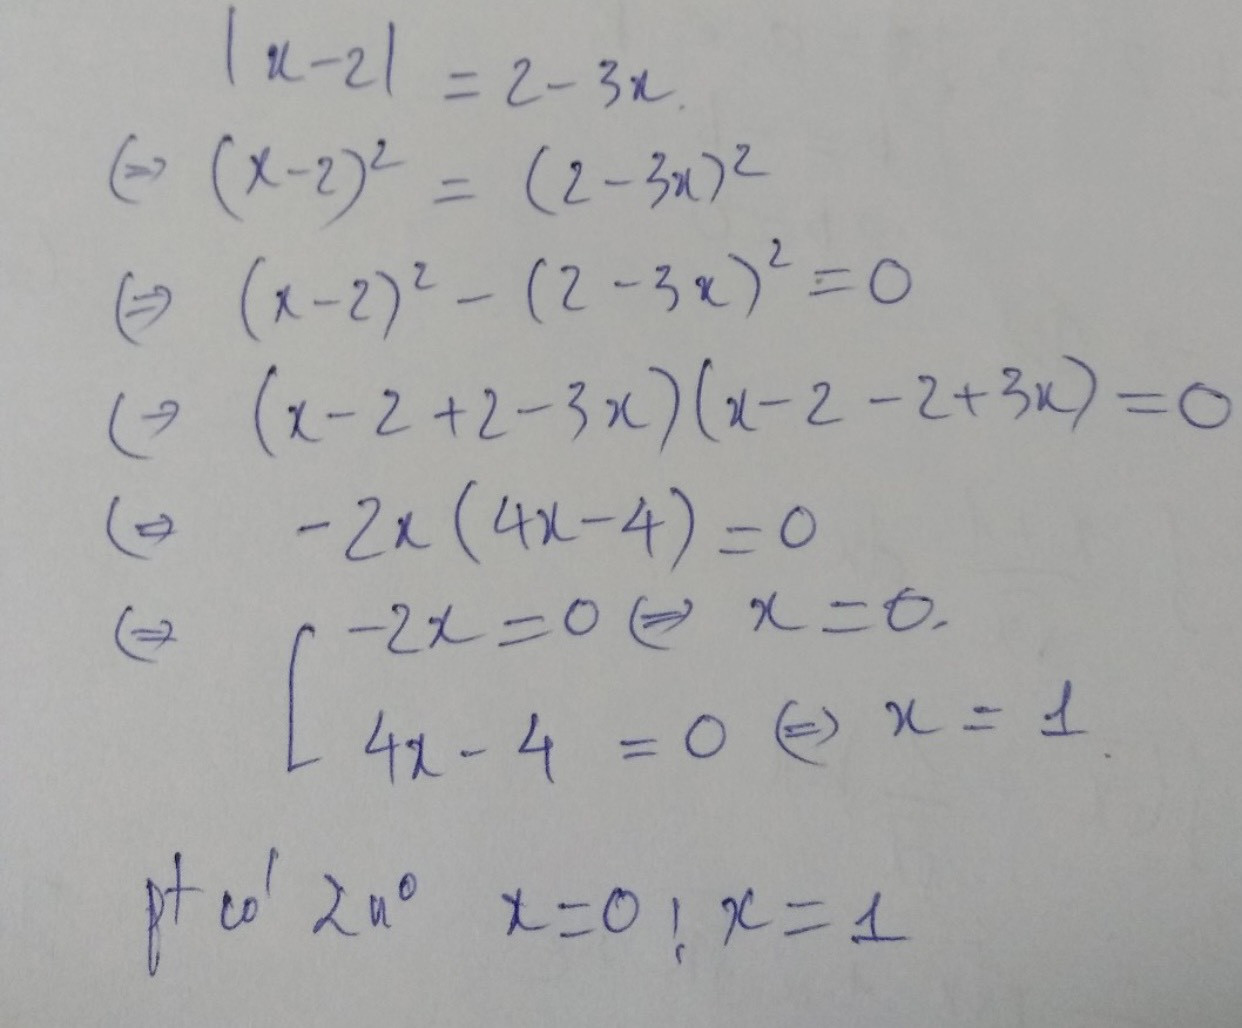 |x-2| = 2-3x.
(=> (x-2)² = (2-3x)²
(=> (x-2)² - (2-3x)² = 0
(=> (x-2+2-3x)(x-2-2+3x) = 0
(=> -2x(4x-4) = 0
(=> [ -2x = 0 (=> x = 0.
4x - 4 = 0 (=> x = 1.
pt có 2n⁰ x=0; x=1